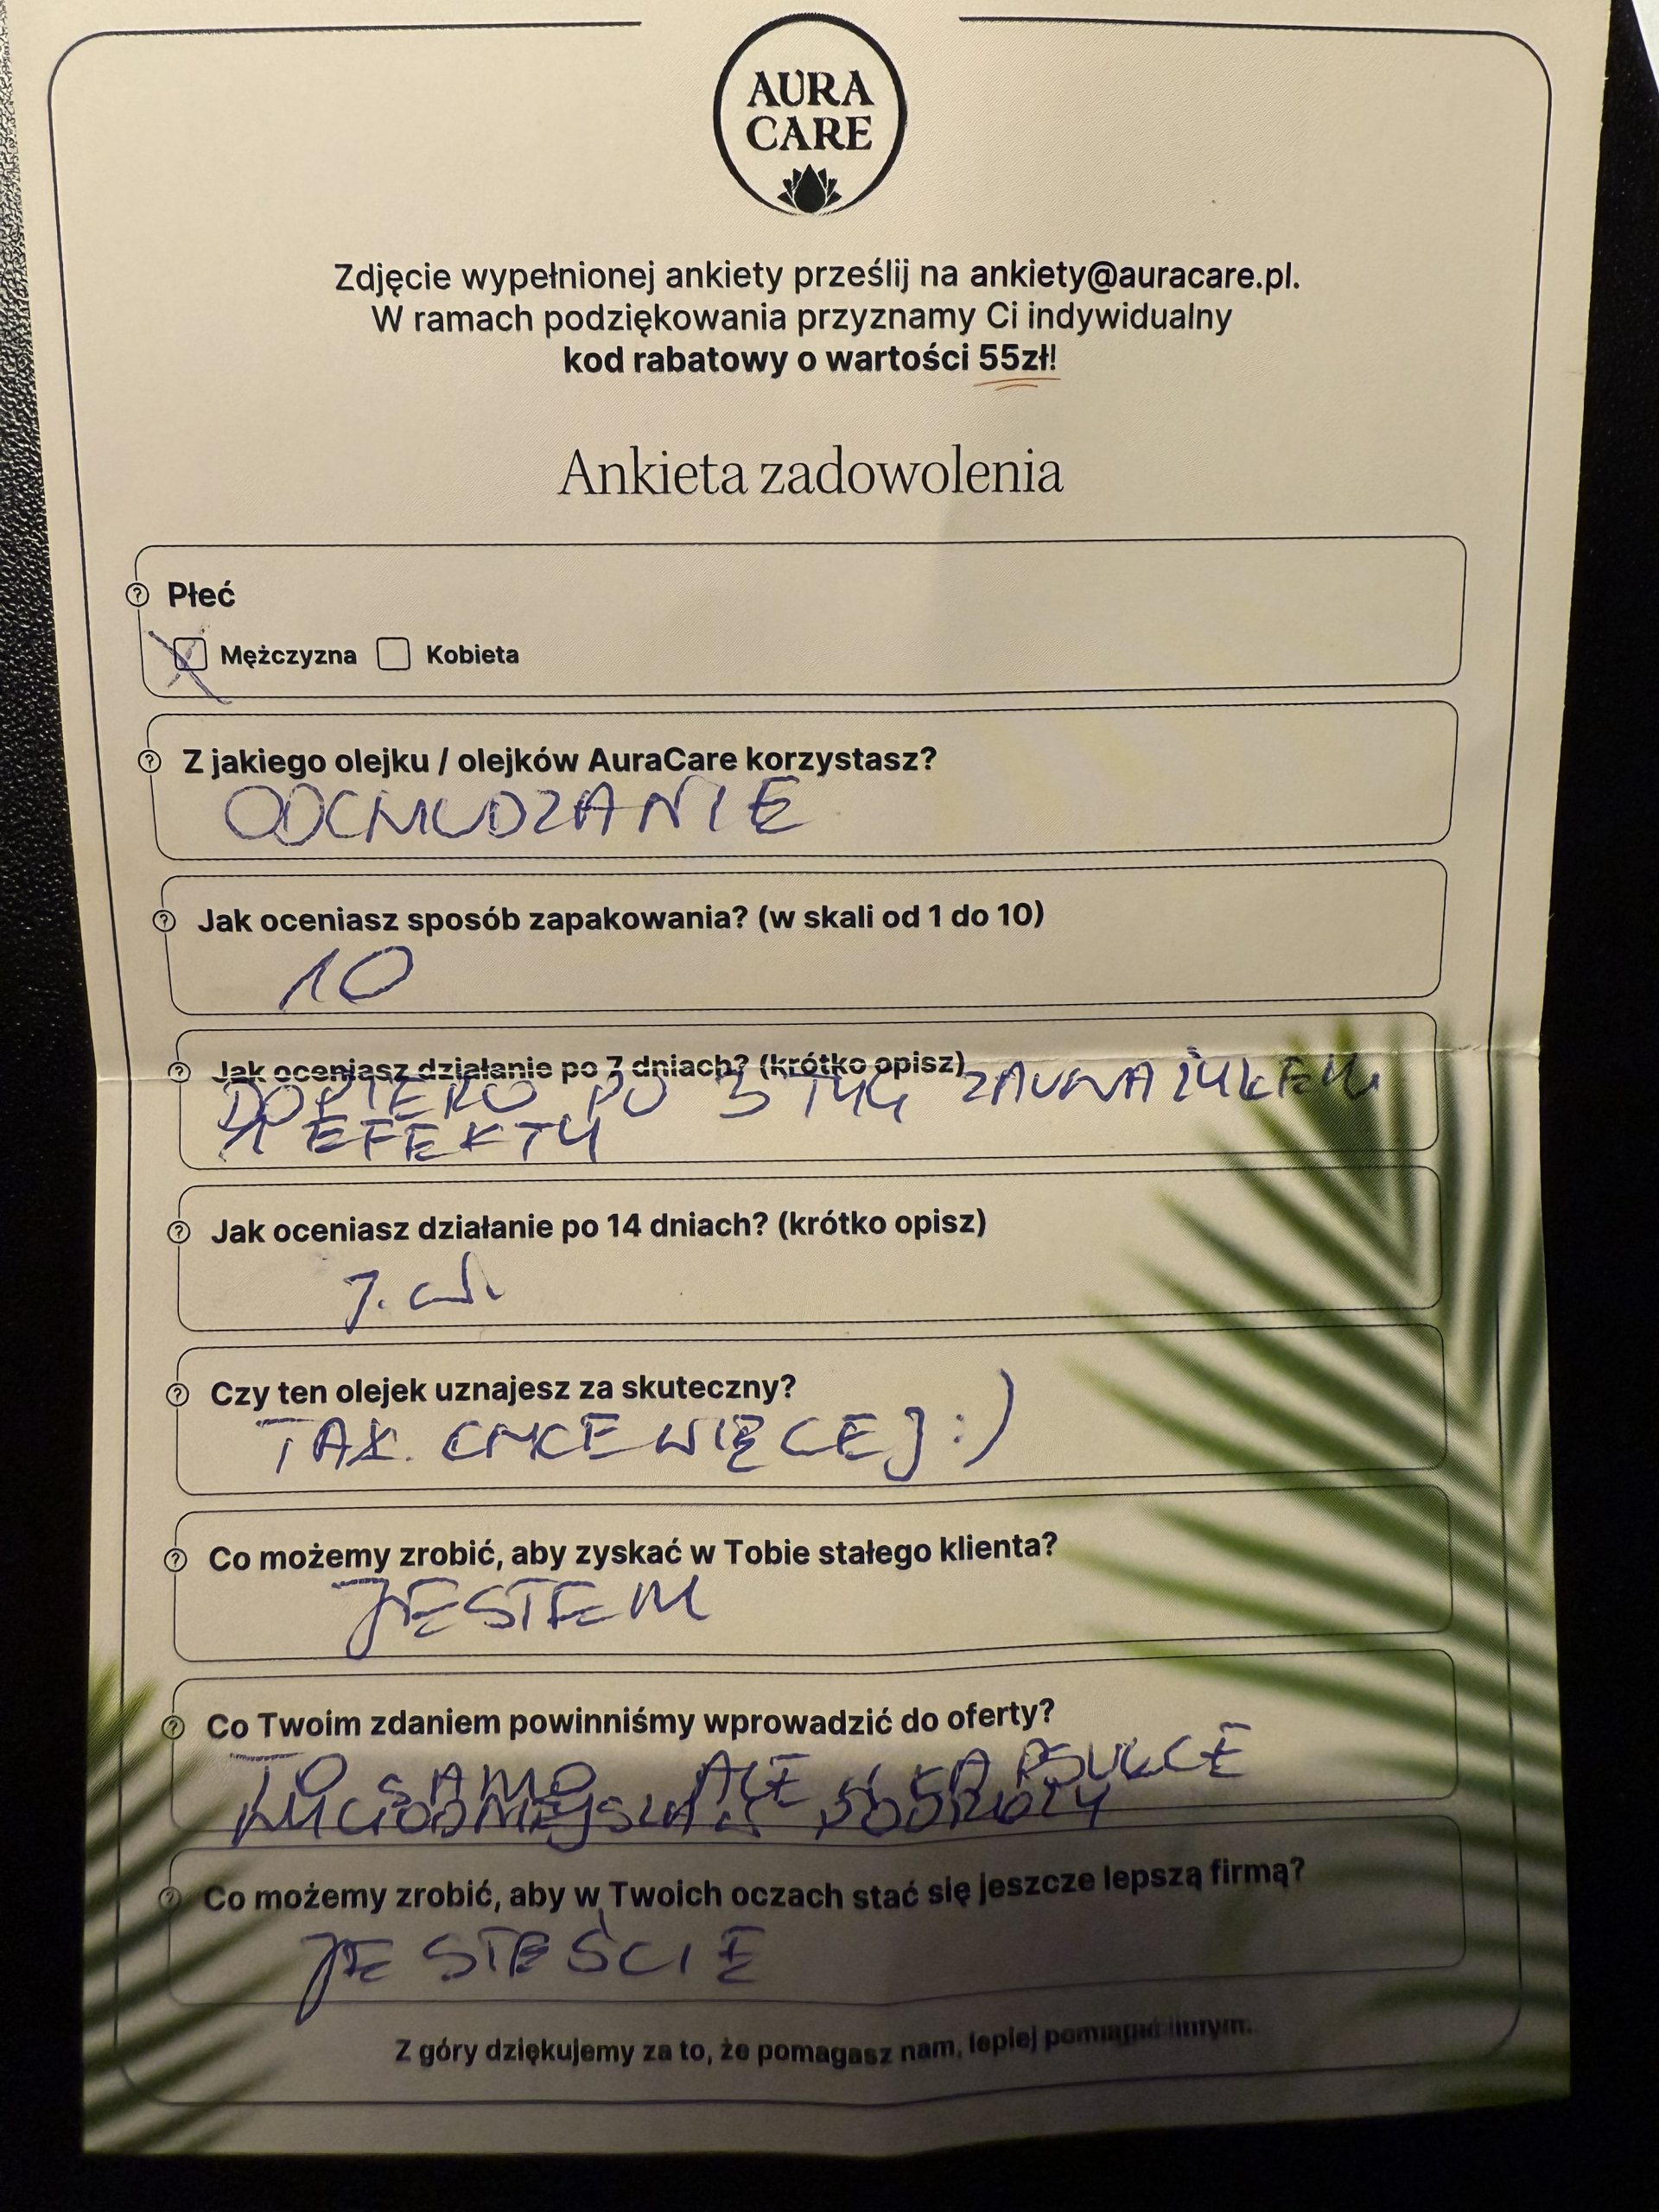 AURA
CARE
Zdjęcie wypełnionej ankiety prześlij na ankiety@auracare.pl.
W ramach podziękowania przyznamy Ci indywidualny
kod rabatowy o wartości 55zł!
Ankieta zadowolenia
Płeć
Mężczyzna Kobieta
Z jakiego olejku / olejków AuraCare korzystasz?
ODCHUDZANIE
Jak oceniasz sposób zapakowania? (w skali od 1 do 10)
10
Jak oceniasz działanie po 7 dniach? (krótko opisz)
DOPIERO PO 3 TYG ZAUWAŻYŁEM
EFEKTY
Jak oceniasz działanie po 14 dniach? (krótko opisz)
Czy ten olejek uznajesz za skuteczny?
TAK. CHCE WIĘCEJ :)
Co możemy zrobić, aby zyskać w Tobie stałego klienta?
JESTEM
Co Twoim zdaniem powinniśmy wprowadzić do oferty?
TO SAMO ALE
Co możemy zrobić, aby w Twoich oczach stać się jeszcze lepszą firmą?
JESTEŚCIE
Z góry dziękujemy za to, że pomagasz nam, lepiej pomagać innym.